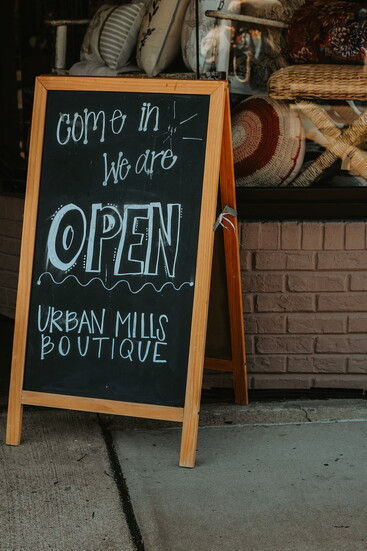 come in
we are
OPEN
URBAN MILLS
BOUTIQUE